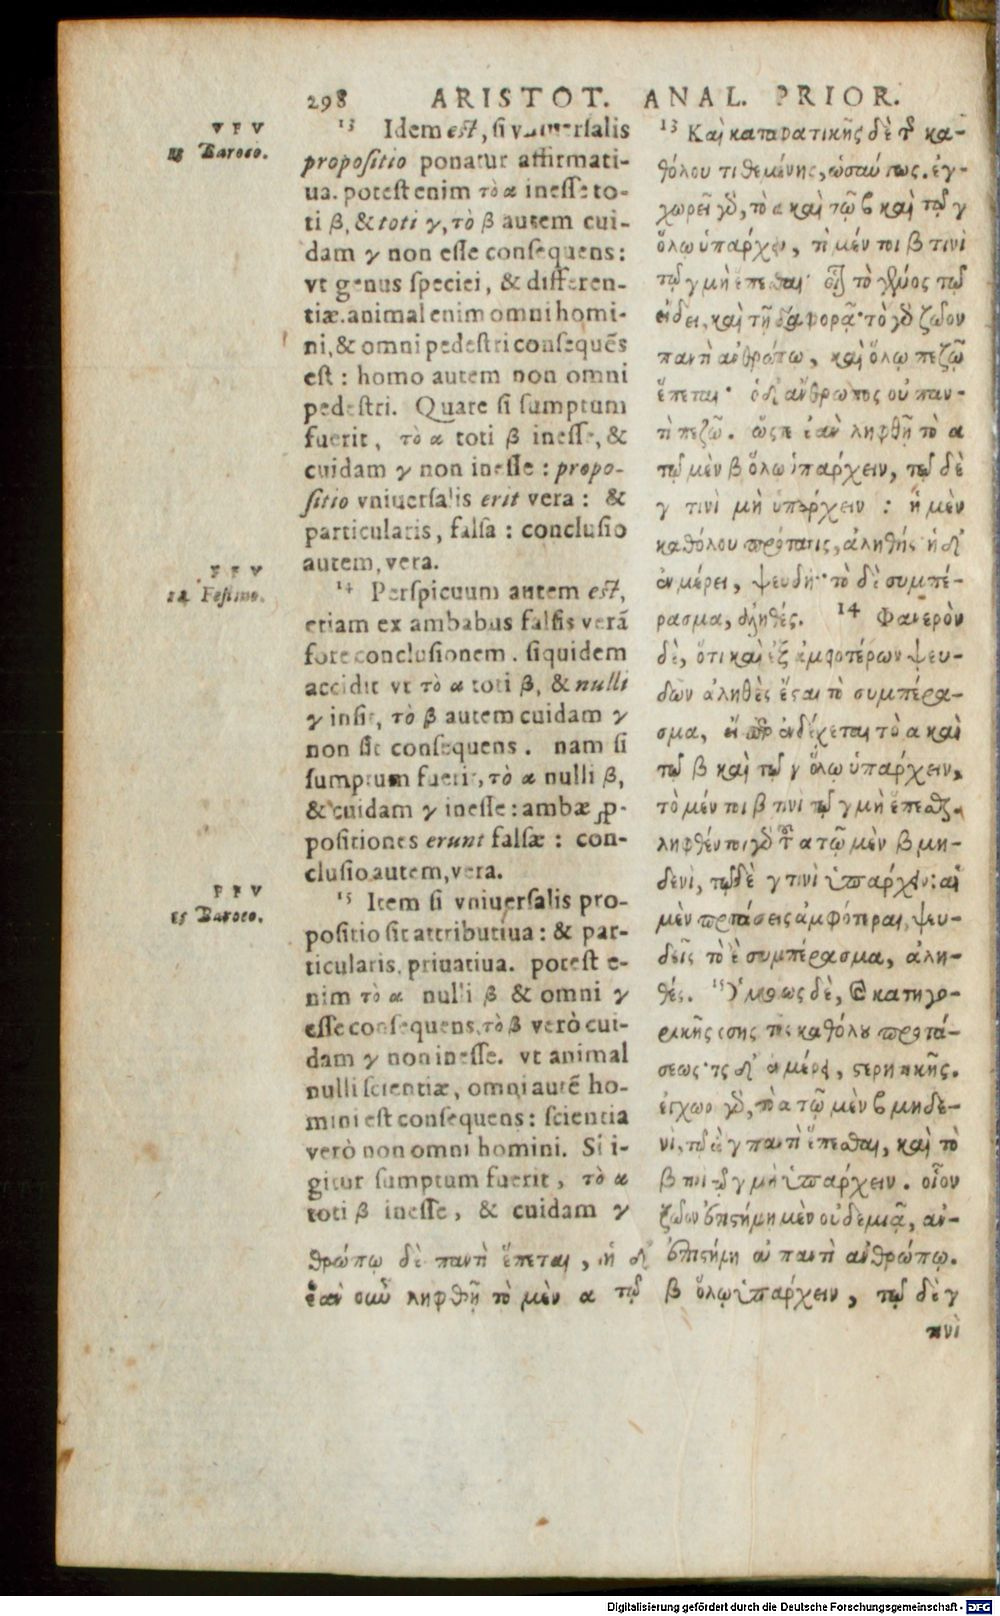 298 ARISTOT. ANAL. PRIOR.
V F V
Baroco.
13 Idem est, si vniuersalis
propositio ponatur affirmati-
ua. potest enim τὸ α inesse to-
ti β, & toti γ, τὸ β autem cui-
dam γ non esse consequens:
vt genus speciei, & differen-
tiæ. animal enim omni homi-
ni, & omni pedestri consequẽs
est: homo autem non omni
pedestri. Quare si sumptum
fuerit, τὸ α toti β inesse, &
cuidam γ non inesse: propo-
sitio vniuersalis erit vera: &
particularis, falsa: conclusio
autem, vera.
F F V
Festino.
14 Perspicuum autem est,
etiam ex ambabus falsis verã
fore conclusionem. siquidem
accidit vt τὸ α toti β, & nulli
γ insit, τὸ β autem cuidam γ
non sit consequens. nam si
sumptum fuerit, τὸ α nulli β,
& cuidam γ inesse: ambæ ꝓ-
positiones erunt falsæ: con-
clusio autem, vera.
F F V
15 Baroco.
15 Item si vniuersalis pro-
positio sit attributiua: & par-
ticularis, priuatiua. potest e-
nim τὸ α nulli β & omni γ
esse consequens, τὸ β verò cui-
dam γ non inesse. vt animal
nulli scientiæ, omni autẽ ho-
mini est consequens: scientia
verò non omni homini. Si i-
gitur sumptum fuerit, τὸ α
toti β inesse, & cuidam γ
13 Καὶ καταφατικῆς δὲ τῆς κα-
θόλου τιθεμένης, ὡσαύτως. ἐγ-
χωρεῖ γὰρ, τὸ α καὶ τῷ β καὶ τῷ γ
ὅλῳ ὑπάρχειν, τὸ μέν τοι β τινὶ
τῷ γ μὴ ἕπεσθαι· οἷον τὸ γένος τῷ
εἴδει, καὶ τῇ διαφορᾷ· τὸ γὰρ ζῶον
παντὶ ἀνθρώπῳ, καὶ ὅλῳ πεζῷ
ἕπεται· ὁ δ' ἄνθρωπος οὐ παν-
τὶ πεζῷ. ὥστε ἐὰν ληφθῇ τὸ α
τῷ μὲν β ὅλῳ ὑπάρχειν, τῷ δὲ
γ τινὶ μὴ ὑπάρχειν: ἡ μὲν
καθόλου πρότασις, ἀληθής· ἡ δ'
ἐν μέρει, ψευδής· τὸ δὲ συμπέ-
ρασμα, ἀληθές. 14 Φανερὸν
δὲ, ὅτι καὶ ἐξ ἀμφοτέρων ψευ-
δῶν ἀληθὲς ἔσται τὸ συμπέρα-
σμα, εἴ περ ἐνδέχεται τὸ α καὶ
τῷ β καὶ τῷ γ ὅλῳ ὑπάρχειν,
τὸ μέν τοι β τινὶ τῷ γ μὴ ἕπεσθαι.
ληφθέντος γὰρ τοῦ α τῷ μὲν β μη-
δενὶ, τῷ δὲ γ τινὶ ὑπάρχειν: αἱ
μὲν προτάσεις ἀμφότεραι, ψευ-
δεῖς τὸ δὲ συμπέρασμα, ἀλη-
θές. 15 Ὁμοίως δὲ, καὶ κατηγο-
ρικῆς οὔσης τῆς καθόλου προτά-
σεως· τῆς δ' ἐν μέρει, στερητικῆς.
ἐγχωρεῖ γὰρ, τὸ α τῷ μὲν β μηδε-
νὶ, τῷ δὲ γ παντὶ ἕπεσθαι, καὶ τὸ
β τινὶ τῷ γ μὴ ὑπάρχειν. οἷον
ζῶον ἐπιστήμῃ μὲν οὐδεμιᾷ, ἀν-
θρώπῳ δὲ παντὶ ἕπεται, ἡ δ' ἐπιστήμη οὐ παντὶ ἀνθρώπῳ.
ἐὰν οὖν ληφθῇ τὸ μὲν α τῷ β ὅλῳ ὑπάρχειν, τῷ δὲ γ
τινὶ
Digitalisierung gefördert durch die Deutsche Forschungsgemeinschaft - DFG